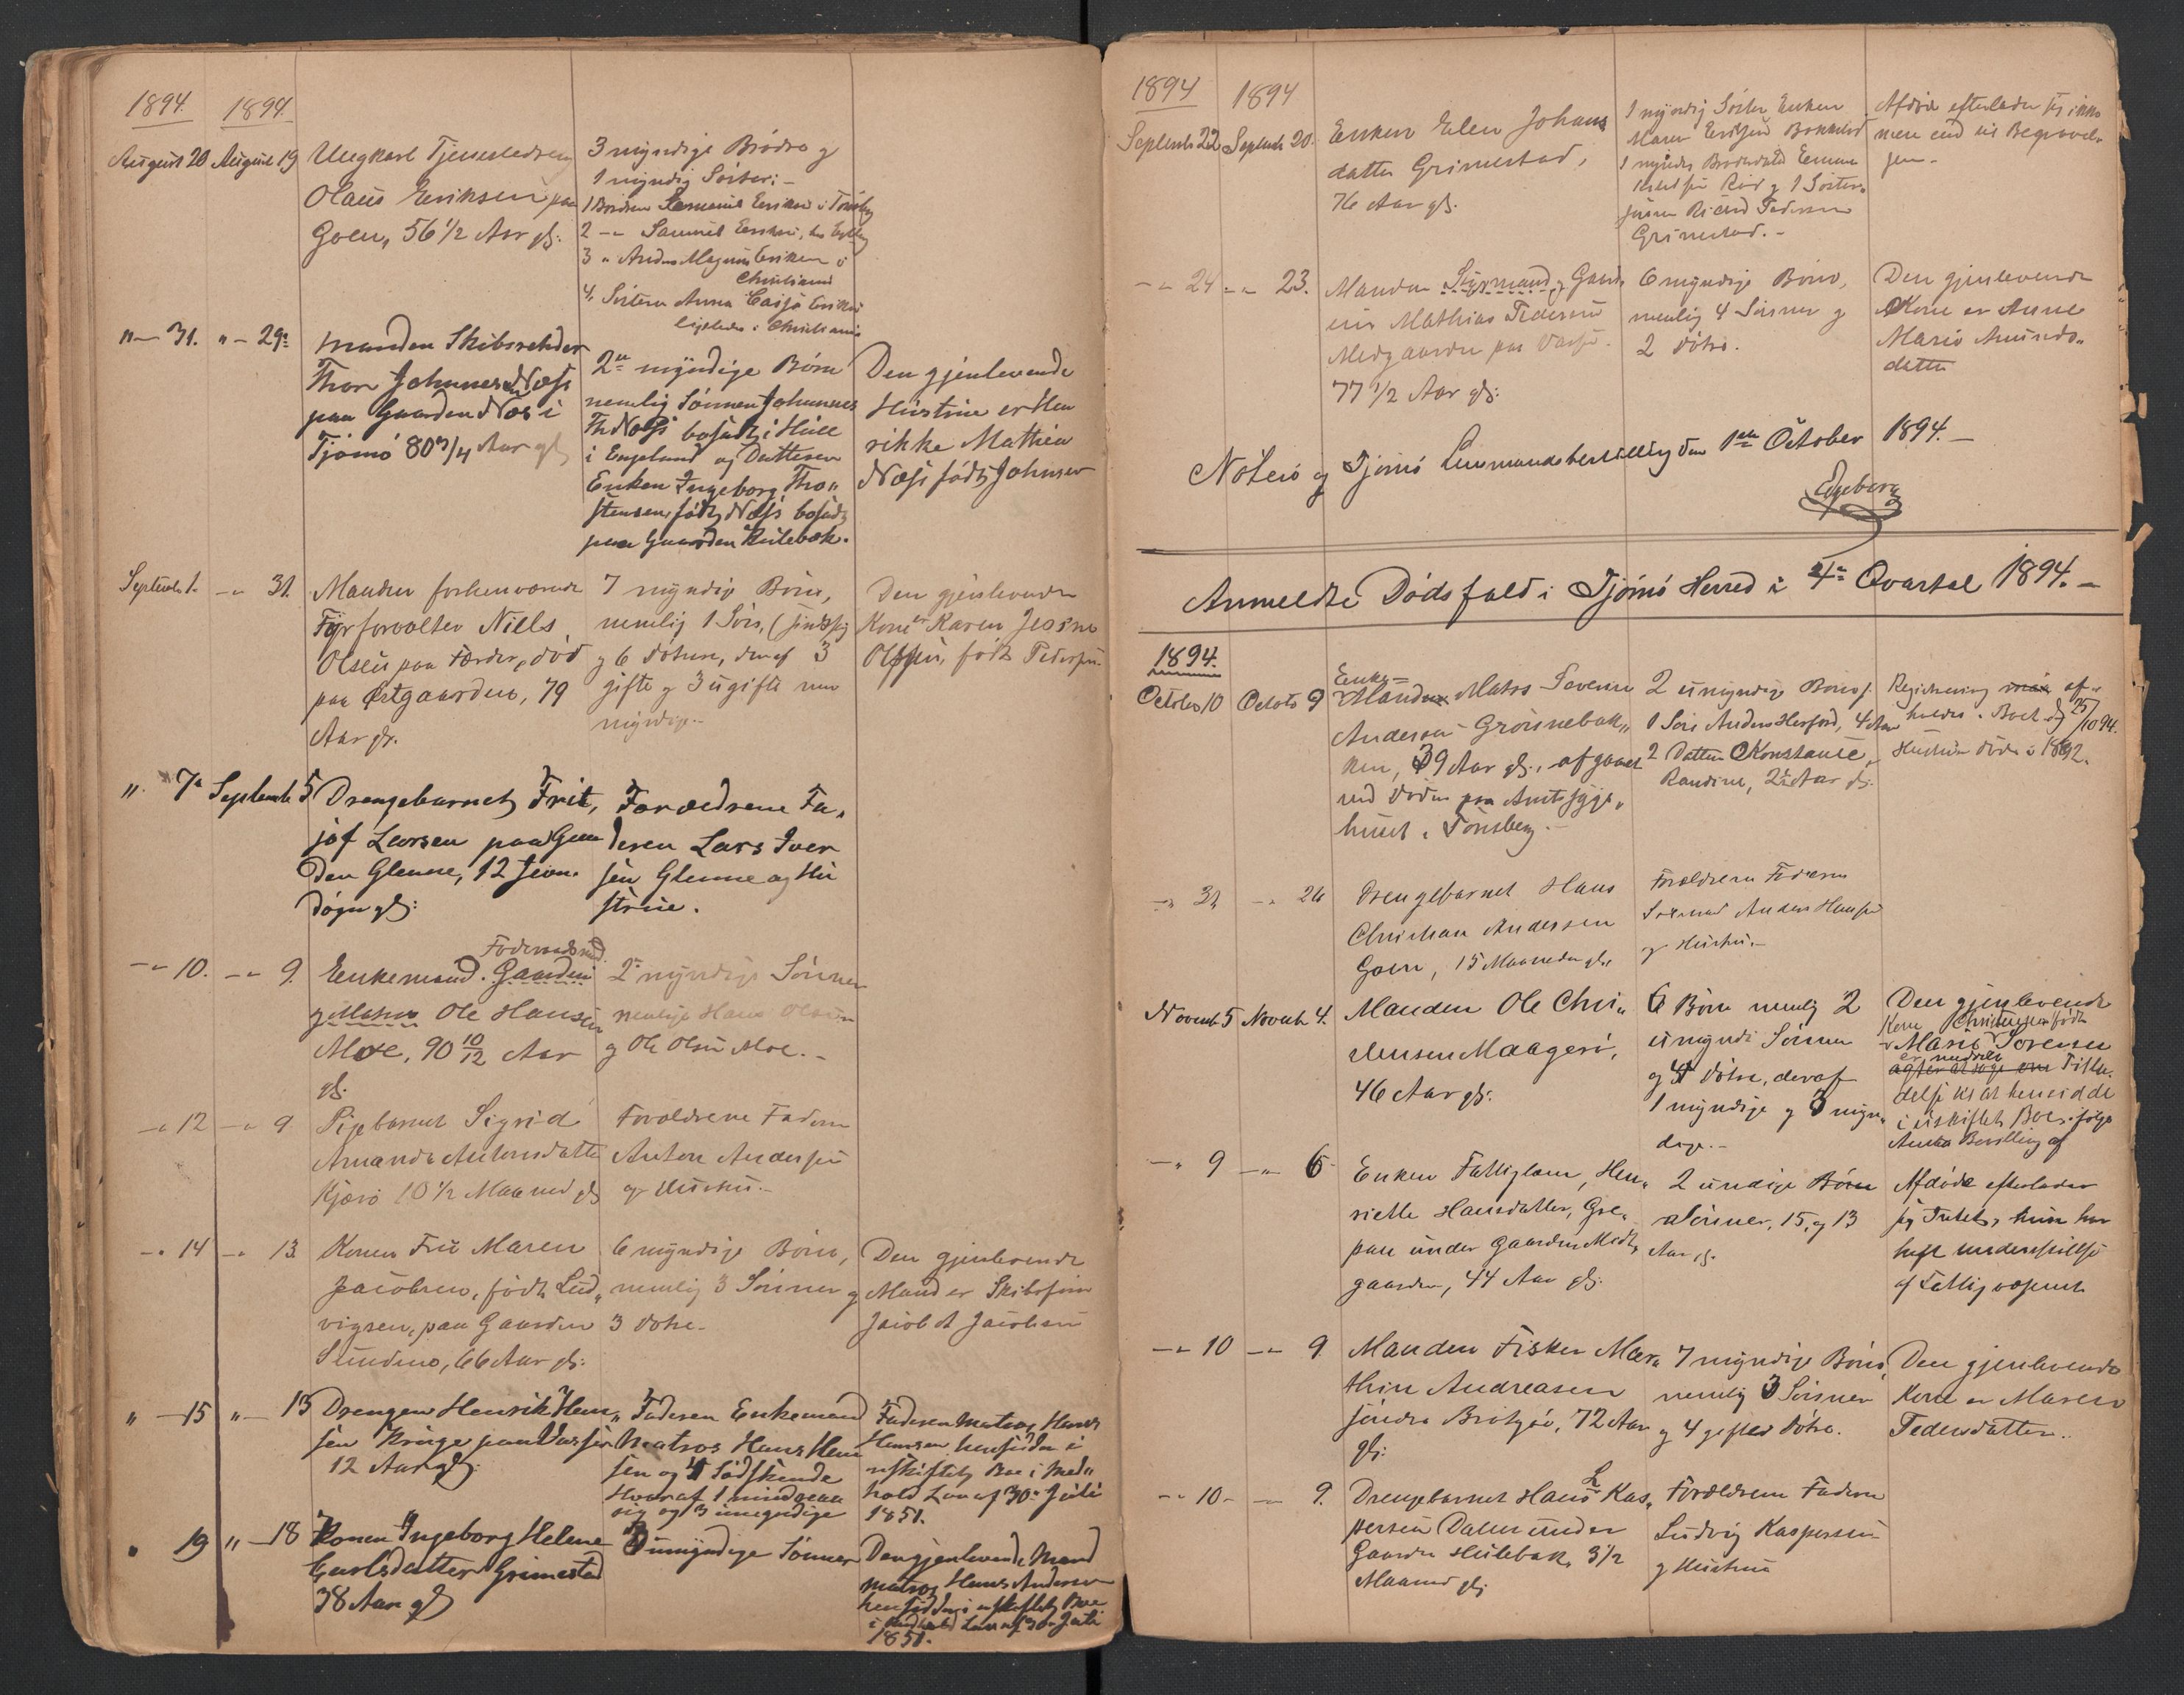 1894. 1894.
August 20 August 19 Ungkarl Tjenestedreng 3 myndige Brødre og
1 myndig Søster:-
Olaus Eriksen paa
Goen, 56 1/2 Aar gl:
3 " Anders Magnus Eriksen i
Christiania
4, Søsteren Anna Eriksen
ligeledes i Christiania
"- 31. "- 29. Manden Skibsrehder
Thor Johnnesen Næss
paa Gaarden Næs i
Tjømø 80 3/4 Aar gl
2de myndige Børn
nemlig Sønnen Johannes
Th Næss bosadt i Hull
i England og Datteren
Enken Ingeborg Tho"
stensen, født Næss bosadt
paa Gaarden Hulebak.
Den gjenlevende
Hustrue er Hen
rikke Mathea
Næss født Johnsen
Septembr 1. -" 31. Manden forhenværende
Fyrforvalter Niels
Olsen paa Færder, død
paa Østgaarden, 79
Aar gl.
7 myndige Børn,
nemlig 1 Søn,
og 6 Døtre, deraf 3
gifte og 3 ugifte men
myndige.-
Den gjenlevende
Kone er Karen
Olsen, født Pedersen.
" 7. September 5 Drengebarnet Frit,
jof Larsen paa Gaar
den Glenne, 12
døgn gl:
Foræeldrene Fa,
deren Lars Iver
sen Glenne og Hu
strue.
-" 10. -" 9. Enkemand. Gaardm.
og Matros Ole Hansen
Moe, 90 10/12 Aar
gl.
2 myndige Sønner
nemlig Hans Olsen
og Ole Olsen Moe.-
-" 12 -" 9 Pigebarnet Sigrid
Amanda Antonsdatter
Kjærø 10 1/2 Maaned gl
Forældrene Faderen
Anton Andersen
og Hustru.-
-" 14 -" 13 Konen Fru Maren
Jacobsen, født Lud"
vigsen, paa Gaarden
Sundene, 66 Aar gl.
6 myndige Børn,
nemlig 3 Sønner og
3 Døtre-
Den gjenlevende
Mand er Skibsfører
Jacob A Jacobsen
" -15 "- 13 Drengen Henrik Han"
sen Kruge paa
12 Aar gl.
Faderen Enkemand
Matros Hans Han
sen og 4 Sødskende
Hvoraf 1
og 3 umyndige
Faderen Matros Hans
Hansen hensidder i
uskiftet Boe i Med"
hold Lov af 30. Juli
1851.
" 19 "-18 Konen Ingeborg Helene
Carlsdatter Grimestad
38 Aar gl
umyndige Sønner
Den gjenlevende Mand
Matros Hans Andersen
hensidder i uskiftet Boe
i Medhold Lov af 30. Juli
1851.
1894 1894
Septembr 22 Septembr 20. Enken Elen Johans
datter Grimestad,
76 Aar gl.
1 myndig Søster Enken
Grimestad.-
Afdøde efterlader sig ikke
mere end til Begravel"
sen-
-" 24 -" 23. Manden Styrmand og Gaard
eier Mathias Pedersen
Medgaarden paa
77 1/2 Aar gl.
6 myndige Børn,
nemlig 4 Sønner og
2 Døtre.
Den gjenlevende
Kone er Anne
Marie Amunds"
datter
Nøterø og Tjømø Lensmandsbestilling den 1ste October 1894.-
Anmeldte Dødsfald i Tjømø Herred i 4de Qvartal 1894.-
1894.
October 10 October 9 Enke=
Anderson Grønnebak"
ken, 39 Aar gl., afgaaet
ved Døden paa Amtssyge"
huset i Tønsberg.-
2 umyndige Børn:
1 Søn Anders, 4 Aar
2 Datter Konstance
Randine, 2 Aar gl.
Registrering af"
holdes i Boet 25/10 94.
Hustruen døde i 1892.
-" 31 -" 26 Drengebarnet Hans
Christian Andersen
Goen, 15 Maaneder gl.
Forældrene Faderen
Sømand Anders Hansen
og Hustru.-
Novembr 5 Novembr 4. Manden Ole Chri"
stensen Maagerø,
46 Aar gl.
6 Børn nemlig 2
umyndi Sønner
og 4 Døtre, deraf
1 myndige og 3 umyn"
dige.-
Den gjenlevende
Kone Christensen født
Marie Sørensen
er meddelt Tilla"
delse til at hensidde
i uskiftet Boe ifølge
Bevilling af
-" 9 -" 6 Enken Fattiglem, Hen"
riette Hansdatter, Gre"
pan under Gaarden Med"
gaarden, 44 Aar gl.
2 undige Børn
Sønner, 15, og 13
Aar gl.
Afdøde efterlader
sig Intet, hun har
havt understøttelse
af Fattigvæsenet
-" 10 -" 9. Manden Fisker Mar"
thin Andreasen
søndre Brøtsø, 72 Aar
gl:
7 myndige Børn,
nemlig 3 Sønner
og 4 gifte Døtre.
Den gjenlevende
Kone er Maren
Pedersdatter.
-" 10- -" 9. Drengebarnet Hans L Kas"
persen Dalen under
Gaarden Hulebak, 3 1/2
Maaned gl.
Forældrene Faderen
Ludvig Kaspersen
og Hustru